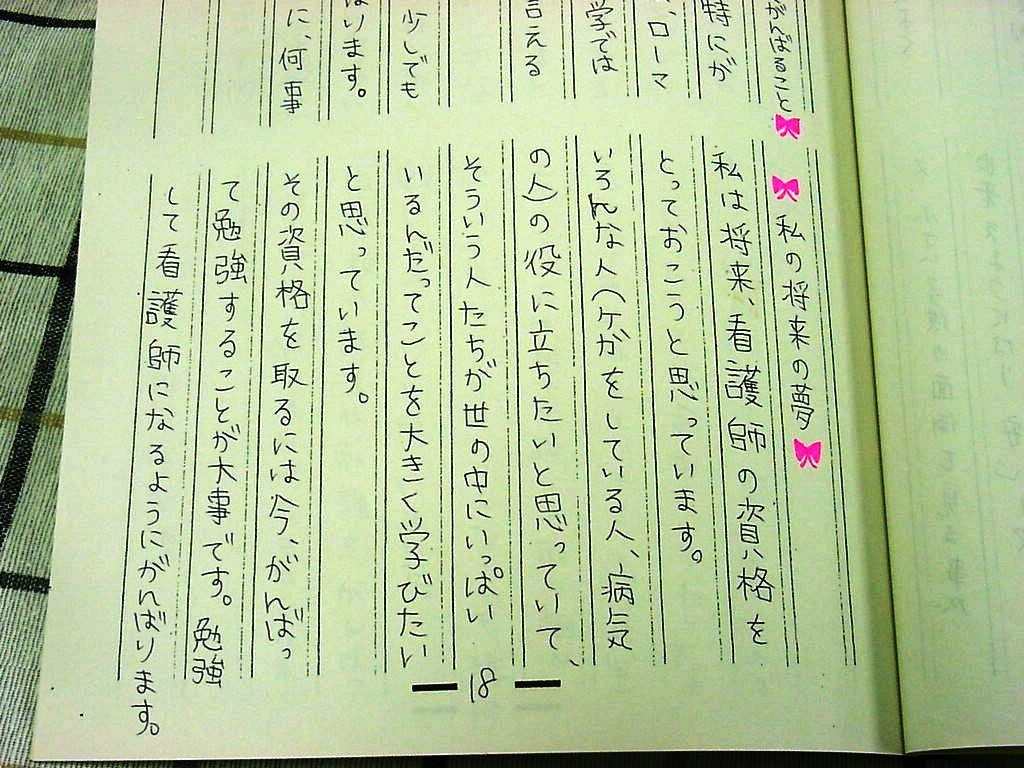 がんばること
特にが
、ローマ
学では
言える
少しでも
ばります。
に、何事
私の将来の夢
私は将来、看護師の資格を
とっておこうと思っています。
いろんな人(ケガをしている人、病気
の人)の役に立ちたいと思っていて、
そういう人たちが世の中にいっぱい
いるんだってことを大きく学びたい
と思っています。
その資格を取るには今、がんばっ
て勉強することが大事です。勉強
して看護師になるようにがんばります。
18